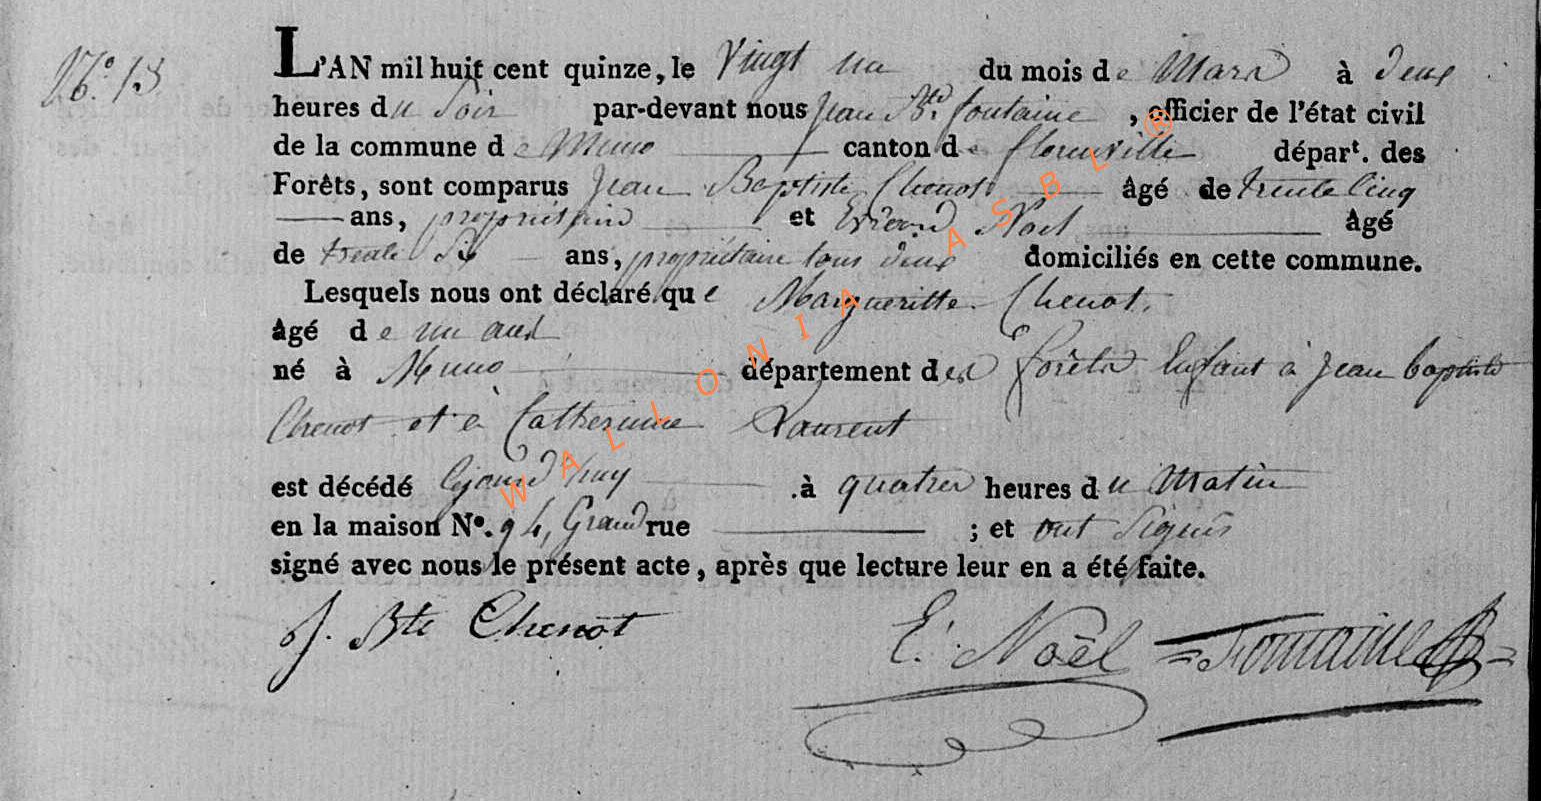 N.° 18
L'AN mil huit cent quinze, le Vingt un du mois de Mars à deux
heures du Soir par-devant nous Jean Bte. fontaine, officier de l'état civil
de la commune de Muno canton de florenville départ. des
Forêts, sont comparus Jean Baptiste Chenot âgé de trente Cinq
ans, propriétaire et Noël âgé
de trente Six ans, propriétaire tous deux domiciliés en cette commune.
Lesquels nous ont déclaré que Margueritte Chenot.
âgé de un
né à Muno département des forêts Enfant à Jean baptiste
Chenot et à Catherinne Laurent
est décédé à quatres heures du Matin
en la maison N°. 94, Grand rue ; et ont Signés
signé avec nous le présent acte, après que lecture leur en a été faite.
J. Bte Chenot E. Noël Fontaine
WALLONIA ASBL ®